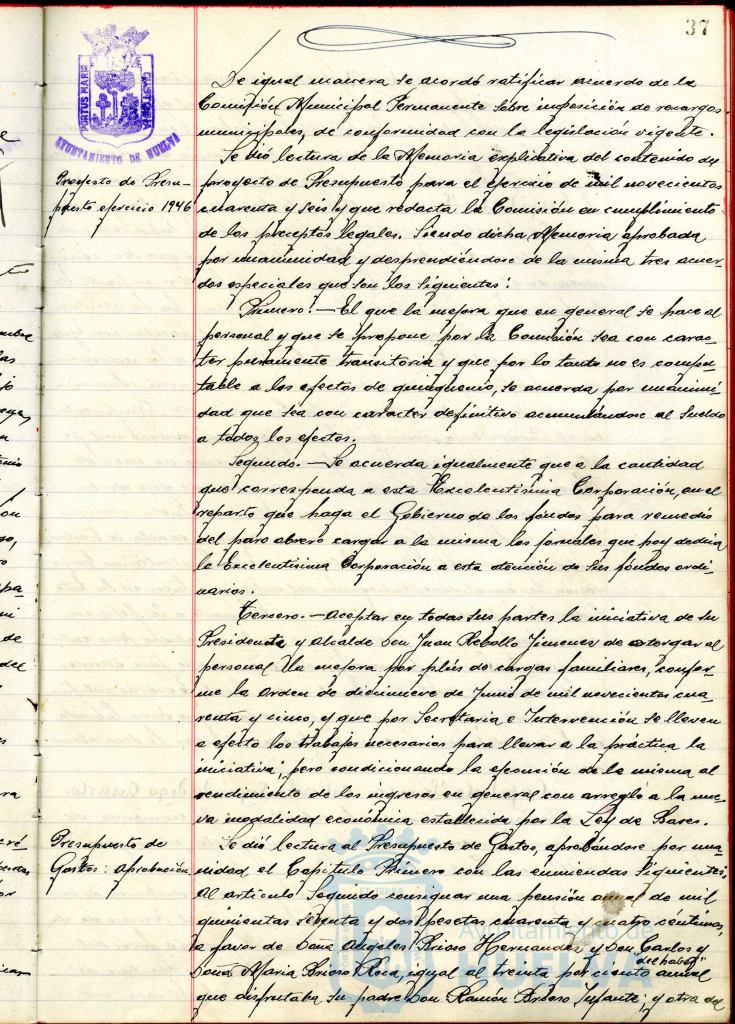 37
PORTUS MARIS
CUSTODIA
AYUNTAMIENTO DE HUELVA
De igual manera se acordó ratificar acuerdo de la
Comisión Municipal Permanente sobre imposición de recargos
municipales, de conformidad con la legislación vigente.
Proyecto de Presu-
puesto ejercicio 1946
Se dió lectura de la Memoria explicativa del contenido del
proyecto de Presupuesto para el ejercicio de mil novecientos
cuarenta y seis y que redacta la Comisión en cumplimiento
de los preceptos legales. Siendo dicha Memoria aprobada
por unanimidad y desprendiéndose de la misma tres acuer-
dos especiales que son los siguientes:
Primero.- El que la mejora que en general se hace al
personal y que se propone por la Comisión sea con carac-
ter puramente transitoria y que por lo tanto no es compu-
table a los efectos de quinquenio, se acuerda por unanimi-
dad que sea con caracter definitivo acumulándose al sueldo
a todos los efectos.
Segundo.- Se acuerda igualmente que a la cantidad
que corresponda a esta Excelentísima Corporación, en el
reparto que haga el Gobierno de los fondos para remedio
del paro obrero cargar a la misma los jornales que hoy dedica
la Excelentísima Corporación a esta atención de sus fondos ordi-
narios.
Tercero.- Aceptar en todas sus partes la iniciativa de su
Presidente y Alcalde Don Juan Rebollo Jimenez de otorgar al
personal la mejora por plús de cargas familiares, confor-
me la Orden de diecinueve de Junio de mil novecientos cua-
renta y cinco, y que por Secretaría e Intervención se lleven
a efecto los trabajos necesarios para llevar a la práctica la
iniciativa, pero condicionando la ejecusión de la misma al
rendimiento de los ingresos en general con arreglo a la nue-
va modalidad económica establecida por la Ley de Bases.
Presupuesto de
Gastos: aprobación
Se dió lectura al Presupuesto de Gastos, aprobándose por una-
nidad el Capítulo Primero con las enmiendas siguientes;
Al artículo Segundo consignar una pensión anual de mil
quinientas setenta y dos pesetas cuarenta y cuatro céntimos
a favor de Doña Angeles Brioso Hernandez y Don Carlos y
Doña Maria Brioso Roca, igual al treinta por ciento anual
"del haber"
que disfrutaba su padre Don Ramón Brioso Infante; y otra de
Ayuntamiento de
HUELVA